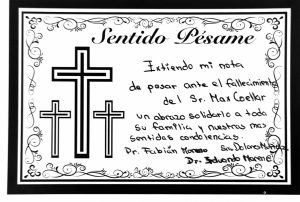 Sentido Pésame
Extiendo mi nota
de pesar ante el fallecimiento
del Sr. Max Cuellar
un abrazo solidario a toda
su familia y nuestras mas
sentidas condolencias.
Dr. Fabián Moreno Sra. Dolores
Dr. Eduardo Moreno